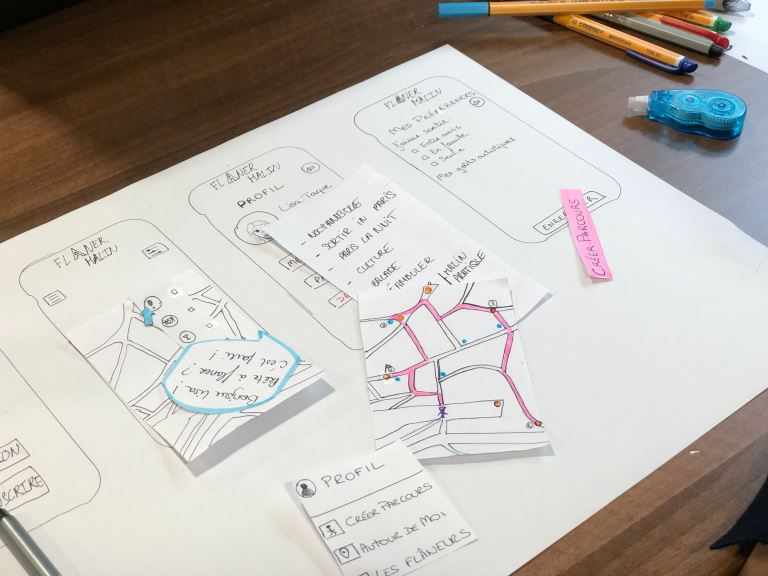 FLÂNER
MALIN
Mes Préférences
J'aime sortir
Entre amis
En famille
Seul·e
Mes goûts artistiques
CRÉER PARCOURS
FLÂNER
MALIN
PROFIL
Lisa Taque
- NOCTAMBULE
- SORTIR IN PARIS
- PARIS LA NUIT
- CULTURE
BALADE
MALIN
PRATIQUE
FLÂNER
MALIN
Bonjour Lisa !
Prête à flâner ?
C'est parti !
PROFIL
CRÉER PARCOURS
AUTOUR DE MOI
LES FLÂNEURS